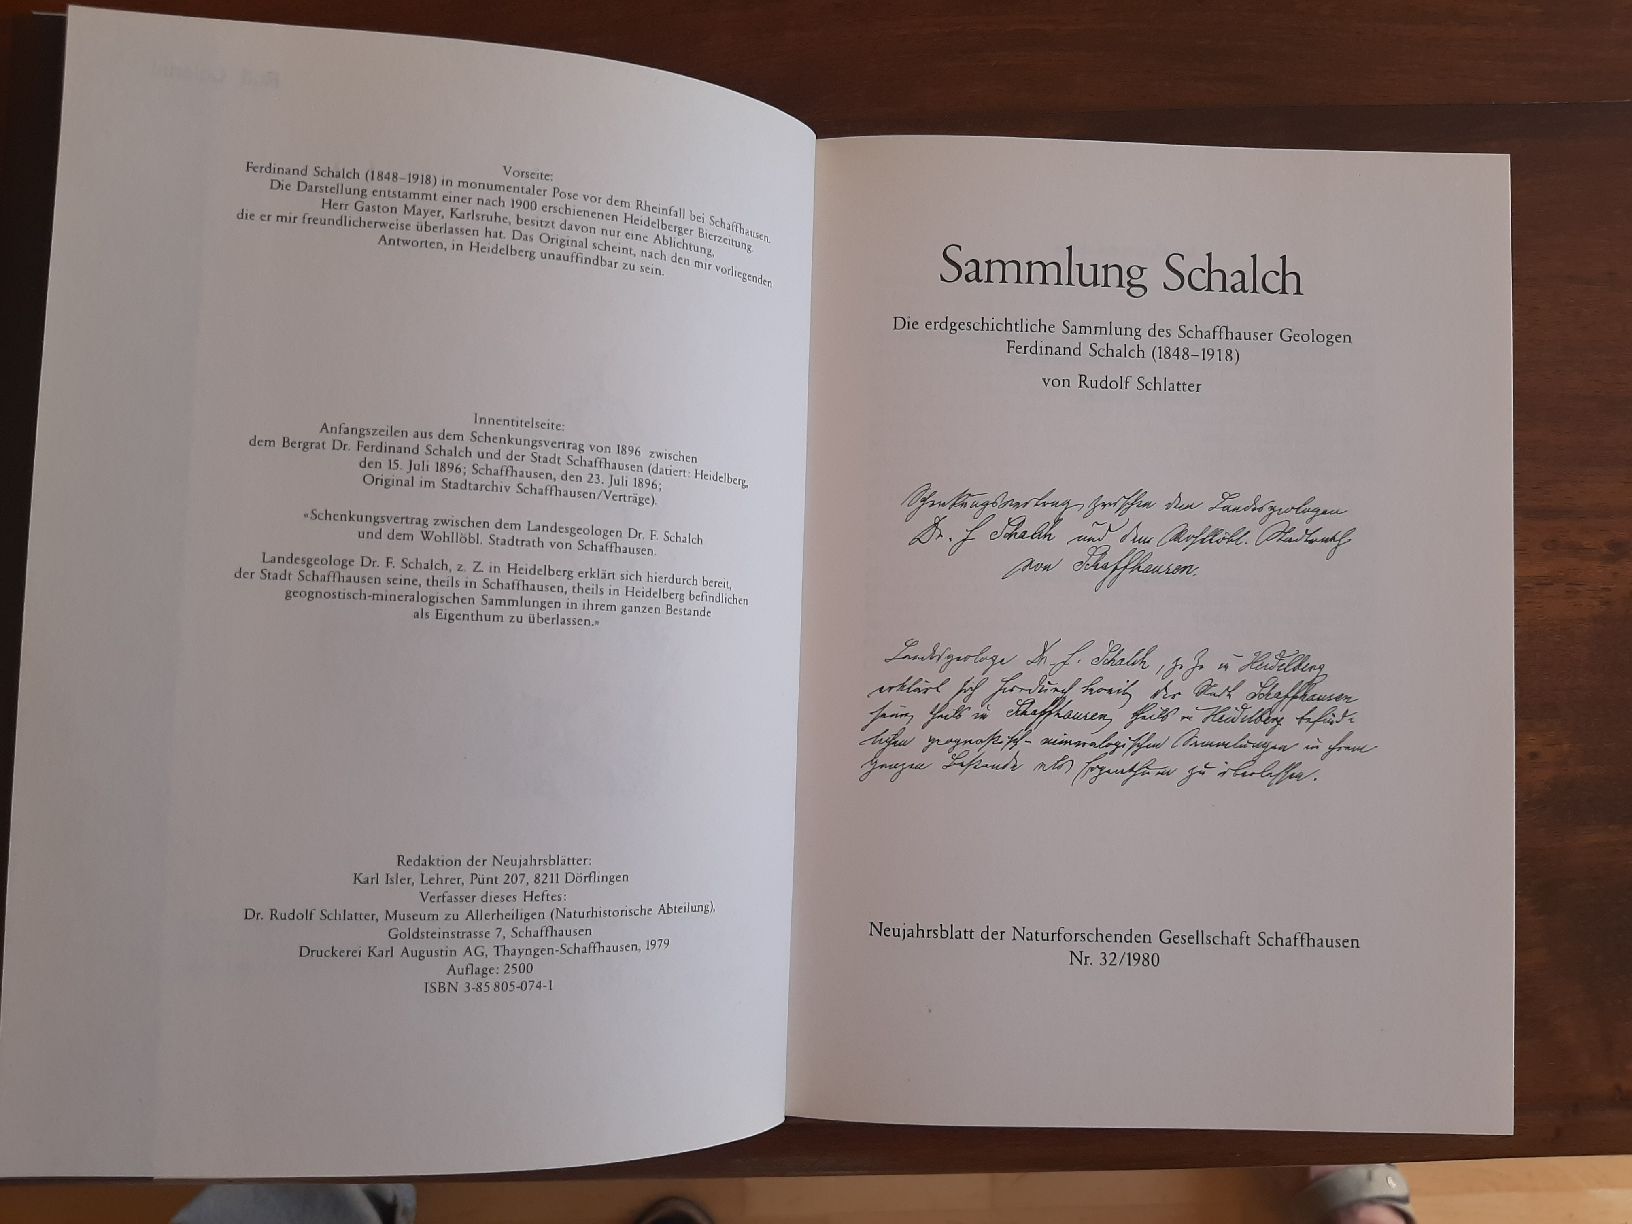 Vorseite:
Ferdinand Schalch (1848–1918) in monumentaler Pose vor dem Rheinfall bei Schaffhausen.
Die Darstellung entstammt einer nach 1900 erschienenen Heidelberger Bierzeitung.
Herr Gaston Mayer, Karlsruhe, besitzt davon nur eine Ablichtung,
die er mir freundlicherweise überlassen hat. Das Original scheint, nach den mir vorliegenden
Antworten, in Heidelberg unauffindbar zu sein.
Innentitelseite:
Anfangszeilen aus dem Schenkungsvertrag von 1896 zwischen
dem Bergrat Dr. Ferdinand Schalch und der Stadt Schaffhausen (datiert: Heidelberg,
den 15. Juli 1896; Schaffhausen, den 23. Juli 1896;
Original im Stadtarchiv Schaffhausen/Verträge).
«Schenkungsvertrag zwischen dem Landesgeologen Dr. F. Schalch
und dem Wohllöbl. Stadtrath von Schaffhausen.
Landesgeologe Dr. F. Schalch, z. Z. in Heidelberg erklärt sich hierdurch bereit,
der Stadt Schaffhausen seine, theils in Schaffhausen, theils in Heidelberg befindlichen
geognostisch-mineralogischen Sammlungen in ihrem ganzen Bestande
als Eigenthum zu überlassen.»
Redaktion der Neujahrsblätter:
Karl Isler, Lehrer, Pünt 207, 8211 Dörflingen
Verfasser dieses Heftes:
Dr. Rudolf Schlatter, Museum zu Allerheiligen (Naturhistorische Abteilung),
Goldsteinstrasse 7, Schaffhausen
Druckerei Karl Augustin AG, Thayngen-Schaffhausen, 1979
Auflage: 2500
ISBN 3-85 805-074-1
Sammlung Schalch
Die erdgeschichtliche Sammlung des Schaffhauser Geologen
Ferdinand Schalch (1848–1918)
von Rudolf Schlatter
Schenkungsvertrag zwischen dem Landesgeologen
Dr. F. Schalch und dem Wohllöbl. Stadtrath
von Schaffhausen.
Landesgeologe Dr. F. Schalch, z. Z. in Heidelberg
erklärt sich hierdurch bereit, der Stadt Schaffhausen
seine, theils in Schaffhausen, theils in Heidelberg befind-
lichen geognostisch-mineralogischen Sammlungen in ihrem
ganzen Bestande als Eigenthum zu überlassen.
Neujahrsblatt der Naturforschenden Gesellschaft Schaffhausen
Nr. 32/1980